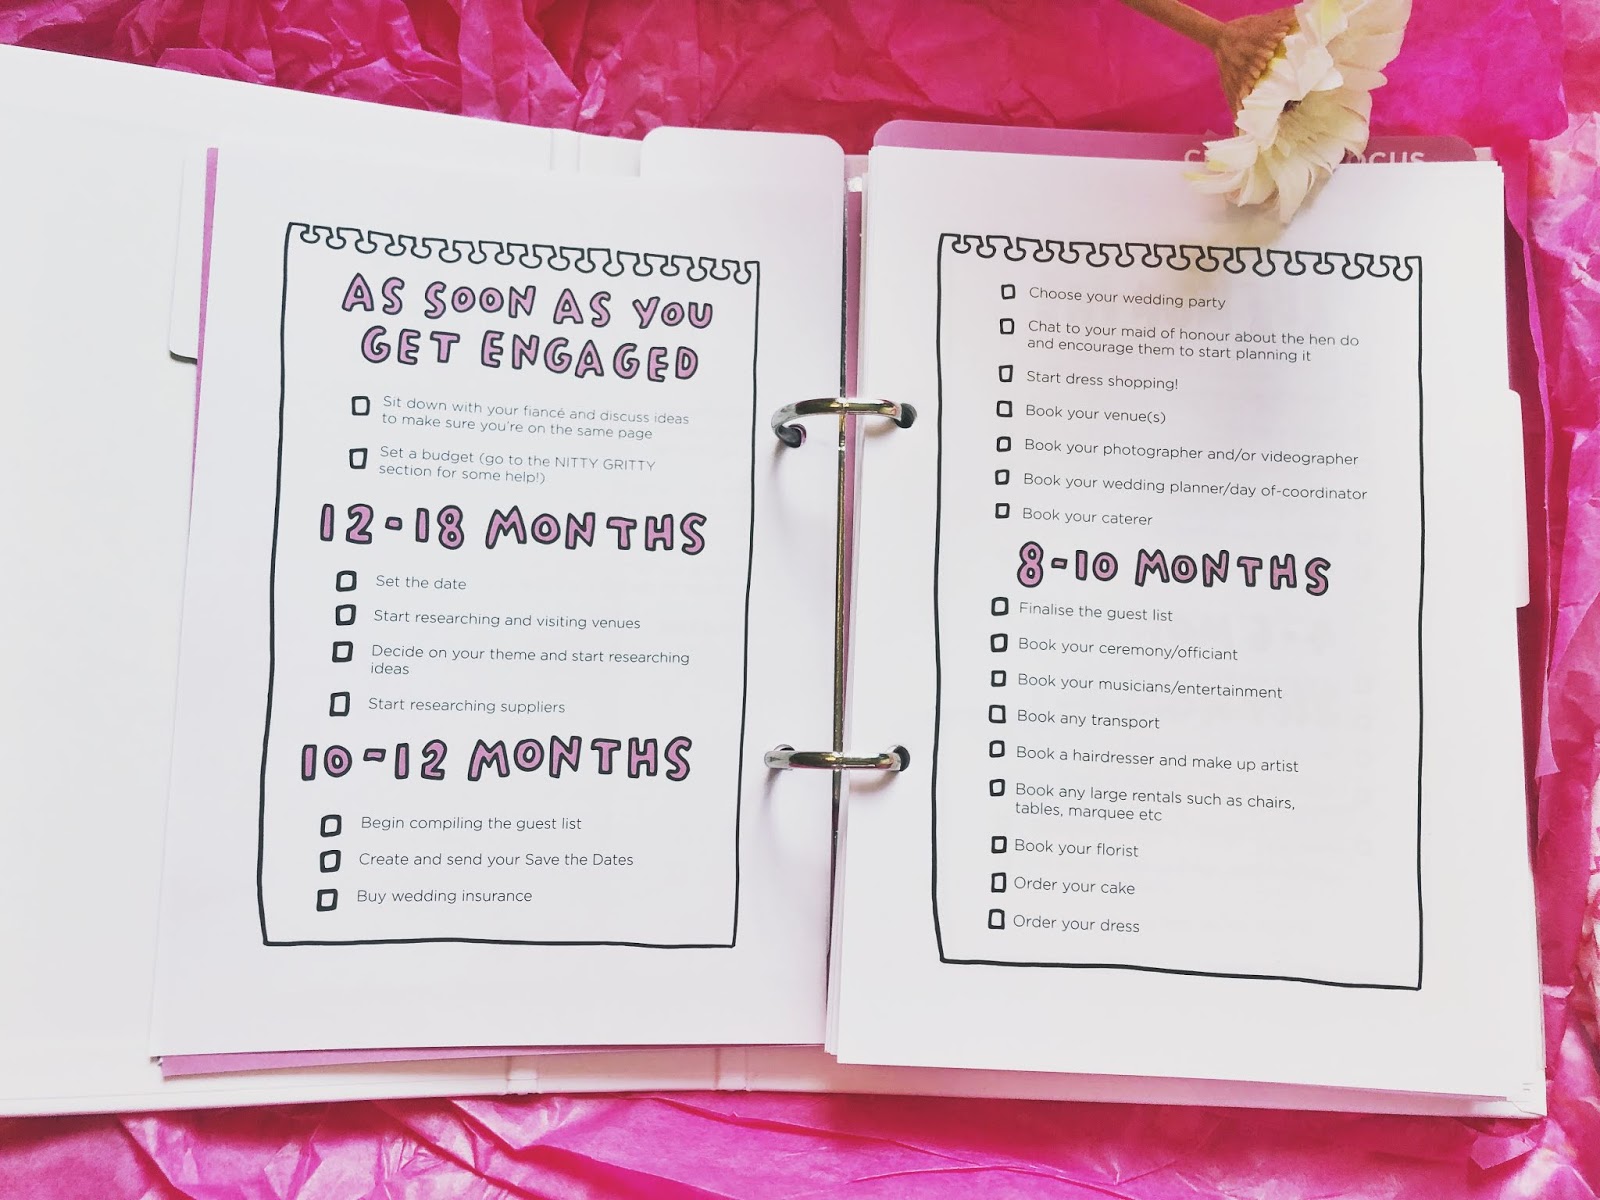 AS SOON AS YOU
GET ENGAGED
Sit down with your fiancé and discuss ideas
to make sure you're on the same page
Set a budget (go to the NITTY GRITTY
section for some help!)
12-18 MONTHS
Set the date
Start researching and visiting venues
Decide on your theme and start researching
ideas
Start researching suppliers
10-12 MONTHS
Begin compiling the guest list
Create and send your Save the Dates
Buy wedding insurance
Choose your wedding party
Chat to your maid of honour about the hen do
and encourage them to start planning it
Start dress shopping!
Book your venue(s)
Book your photographer and/or videographer
Book your wedding planner/day of-coordinator
Book your caterer
8-10 MONTHS
Finalise the guest list
Book your ceremony/officiant
Book your musicians/entertainment
Book any transport
Book a hairdresser and make up artist
Book any large rentals such as chairs,
tables, marquee etc
Book your florist
Order your cake
Order your dress